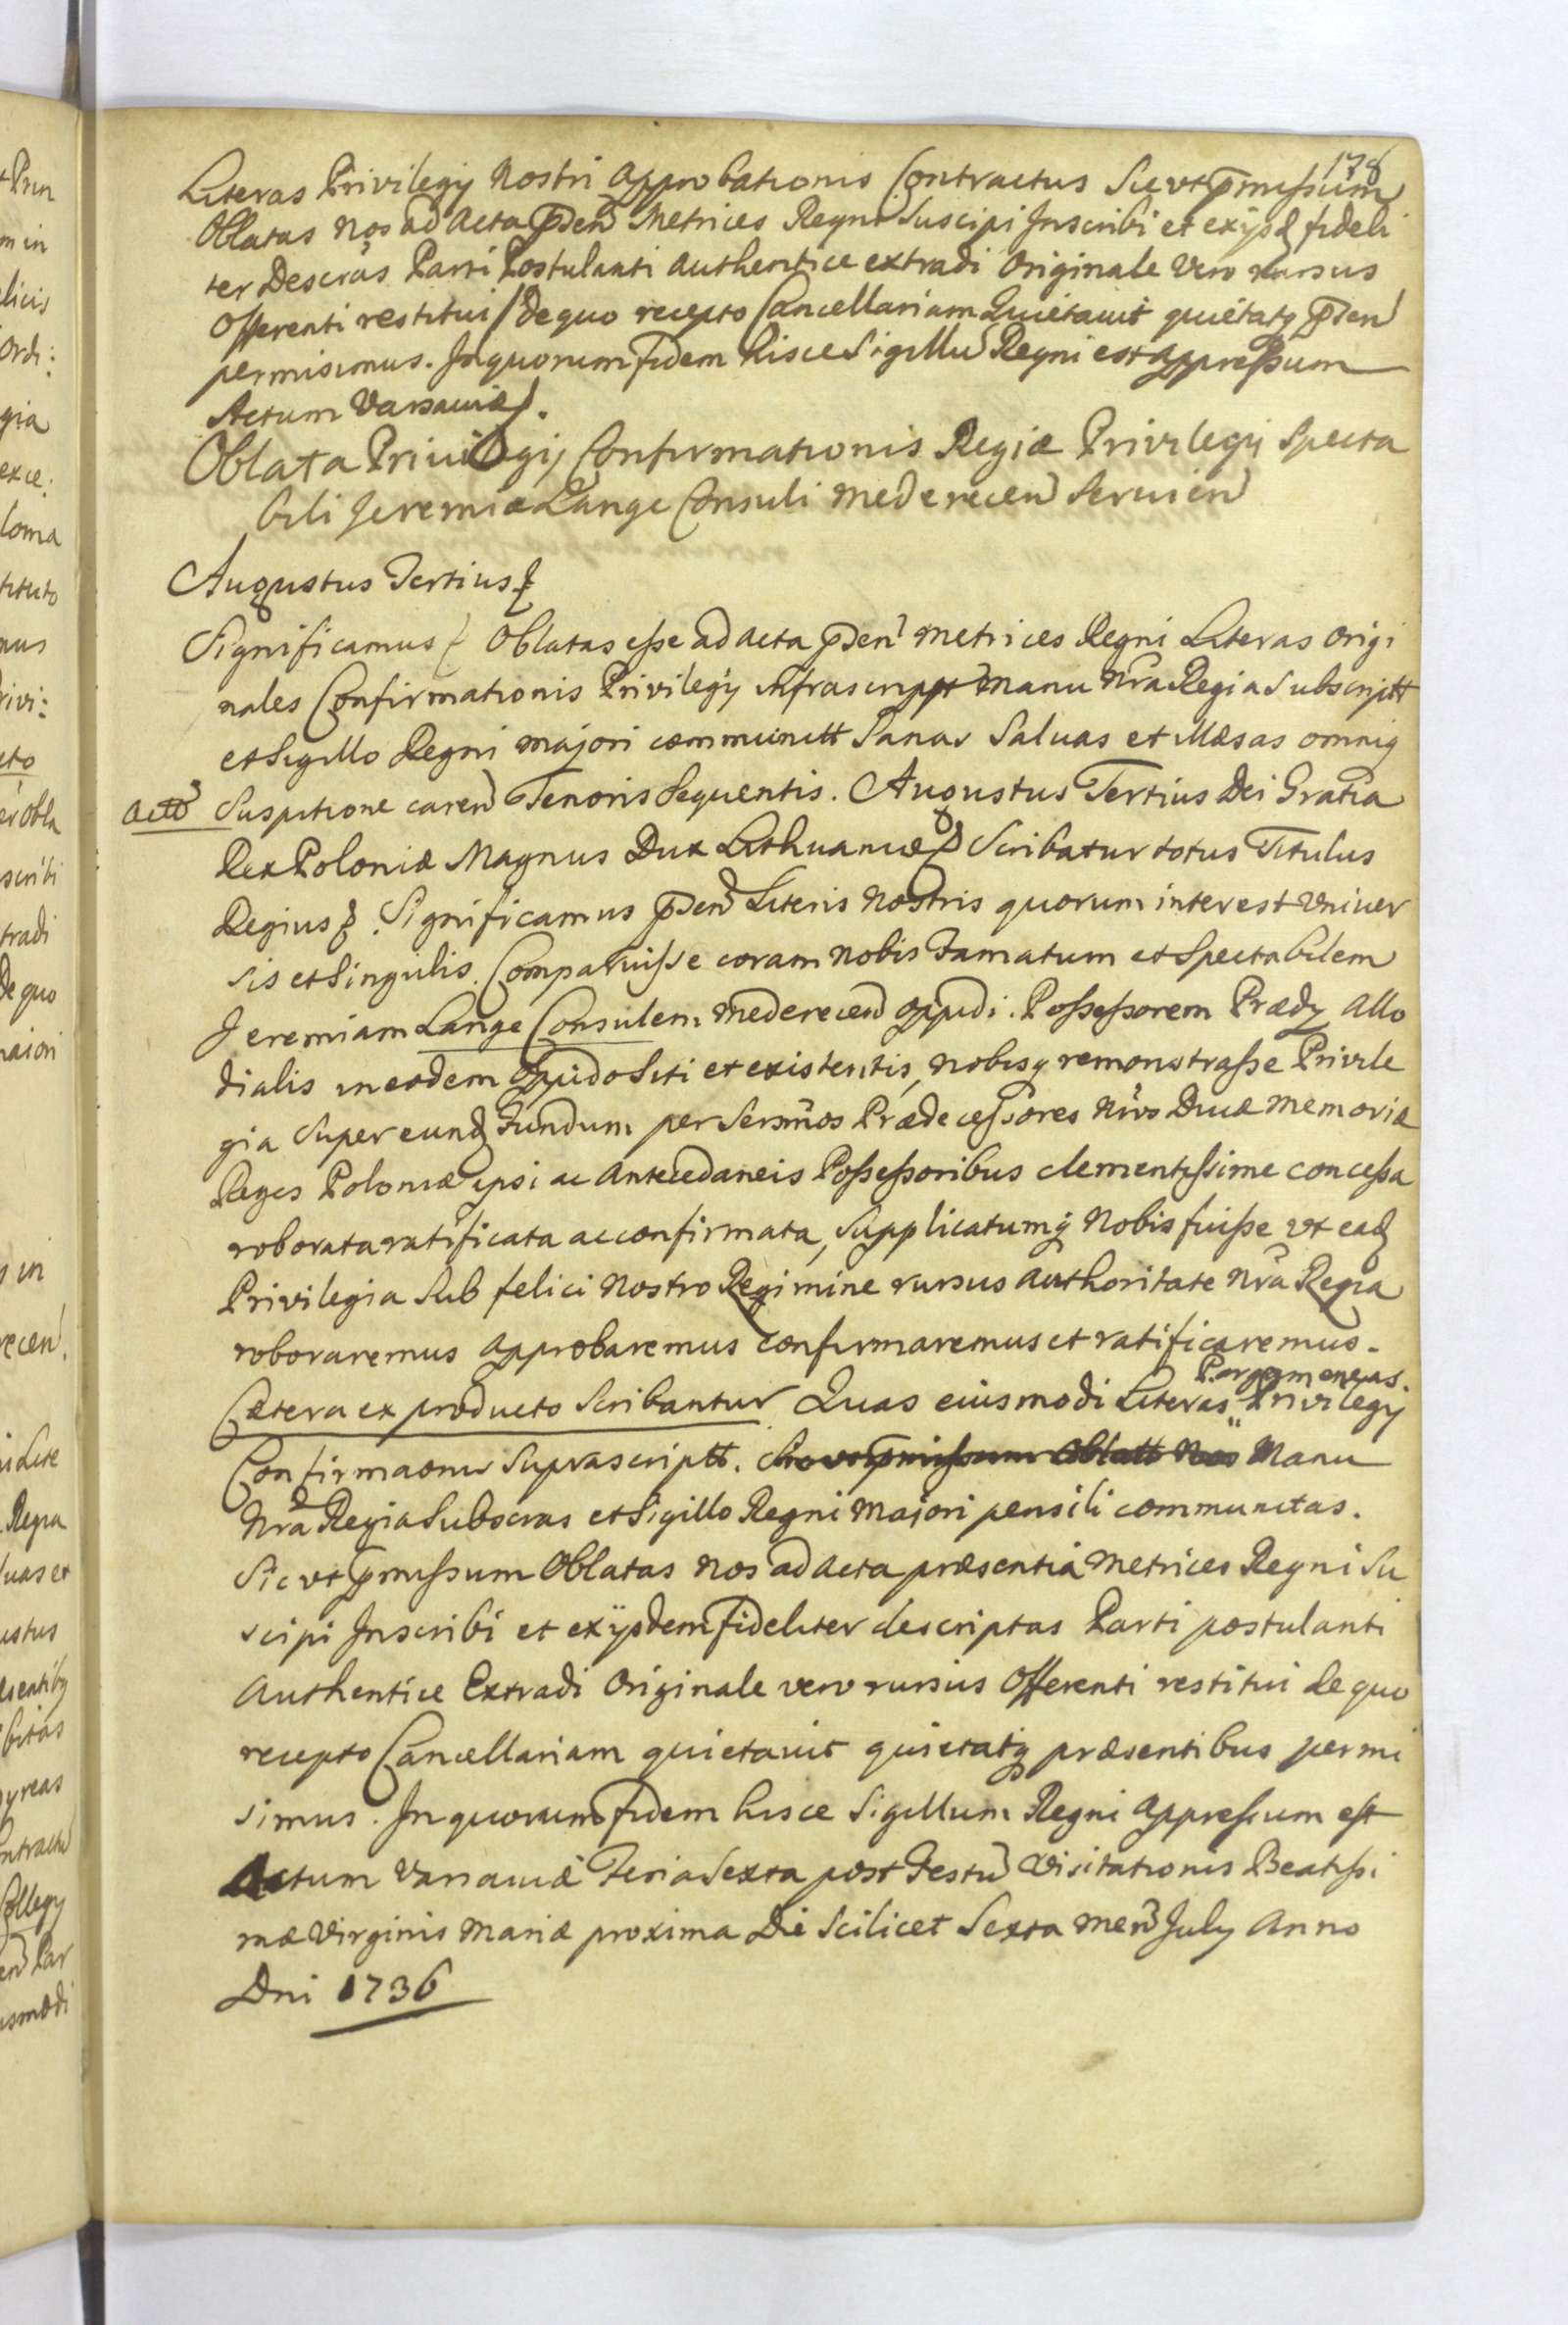 178
Literas Privilegÿ Nostri Approbationis Contractus Sic vt p̄missum
Oblatas Nos ad Acta p̄den̄ Metrices Regni Suscipi Inscribi et exÿsd fideli
ter Descr̄as Parti Postulanti authentice extradi Originale vero rursus
Offerenti restitui / de quo recepto Cancellariam Quietavit quietatq p̄den̄
permisimus. In quorum fidem hisce Sigillū Regni est appressum
Actum Varsaviæ
Oblata Privilegij Confirmationis Regiæ Privilegij Specta
bili Jeremiæ Lange Consuli Mederecen̄ Servien̄
Augustus Tertius
Significamus Oblatas esse ad acta p̄den̄ Metrices Regni Literas origi
nales Confirmationis Privilegÿ infrascript Manu Nr̄a Regia Subscriptt
et Sigillo Regni majori communitt Sanas Salvas et Illæsas omniq
actō Suspitione caren̄ Tenoris Sequentis. Augustus Tertius Dei Gratia
Rex Poloniæ Magnus Dux Lithuaniæ Scribatur totus Titulus
Regius. Significamus p̄den̄ Literis Nostris quorum interest Vniver
sis et Singulis. Comparuisse coram Nobis Famatum et Spectabilem
Jeremiam Lange Consulem Mederecen̄ Oppidi. Possessorem Prædÿ Allo
dialis in eodem Oppido Siti et existentis, Nobisq remonstrasse Privile
gia Super eund Fundum per Serm̄os Prædecessores Nr̄os Divæ Memoriæ
Reges Poloniæ ipsi ac Antecedaneis Possessoribus clementissime concessa
roborata ratificata ac confirmata, Supplicatumq Nobis fuisse vt ead
Privilegia Sub felici Nostro Regimine rursus Authoritate Nr̄a Regia
roboraremus approbaremus confirmaremus et ratificaremus.
Pargameneas.
Cætera ex producto Scribantur Quas eiusmodi Literas Privilegÿ
Confirmaōnis Suprascriptt. Sic vt p̄missum Oblatt Nos Manu
Nr̄a Regia Subscras et Sigillo Regni Majori pensili communitas.
Sic vt p̄missum Oblatas Nos ad Acta præsentia Metrices Regni Su
scipi Inscribi et exÿsdem fideliter descriptas Parti postulanti
Authentice Extradi Originale vero rursus Offerenti restitui de quo
recepto Cancellariam quietavit quietatq præsentibus permi
simus. In quorum fidem hisce Sigillum Regni appressum est
Actum Varsaviæ Feria Sexta post Festū Visitationis Beatissi
mæ Virginis Mariæ proxima Die Scilicet Sexta Men̄ July Anno
Dni 1736